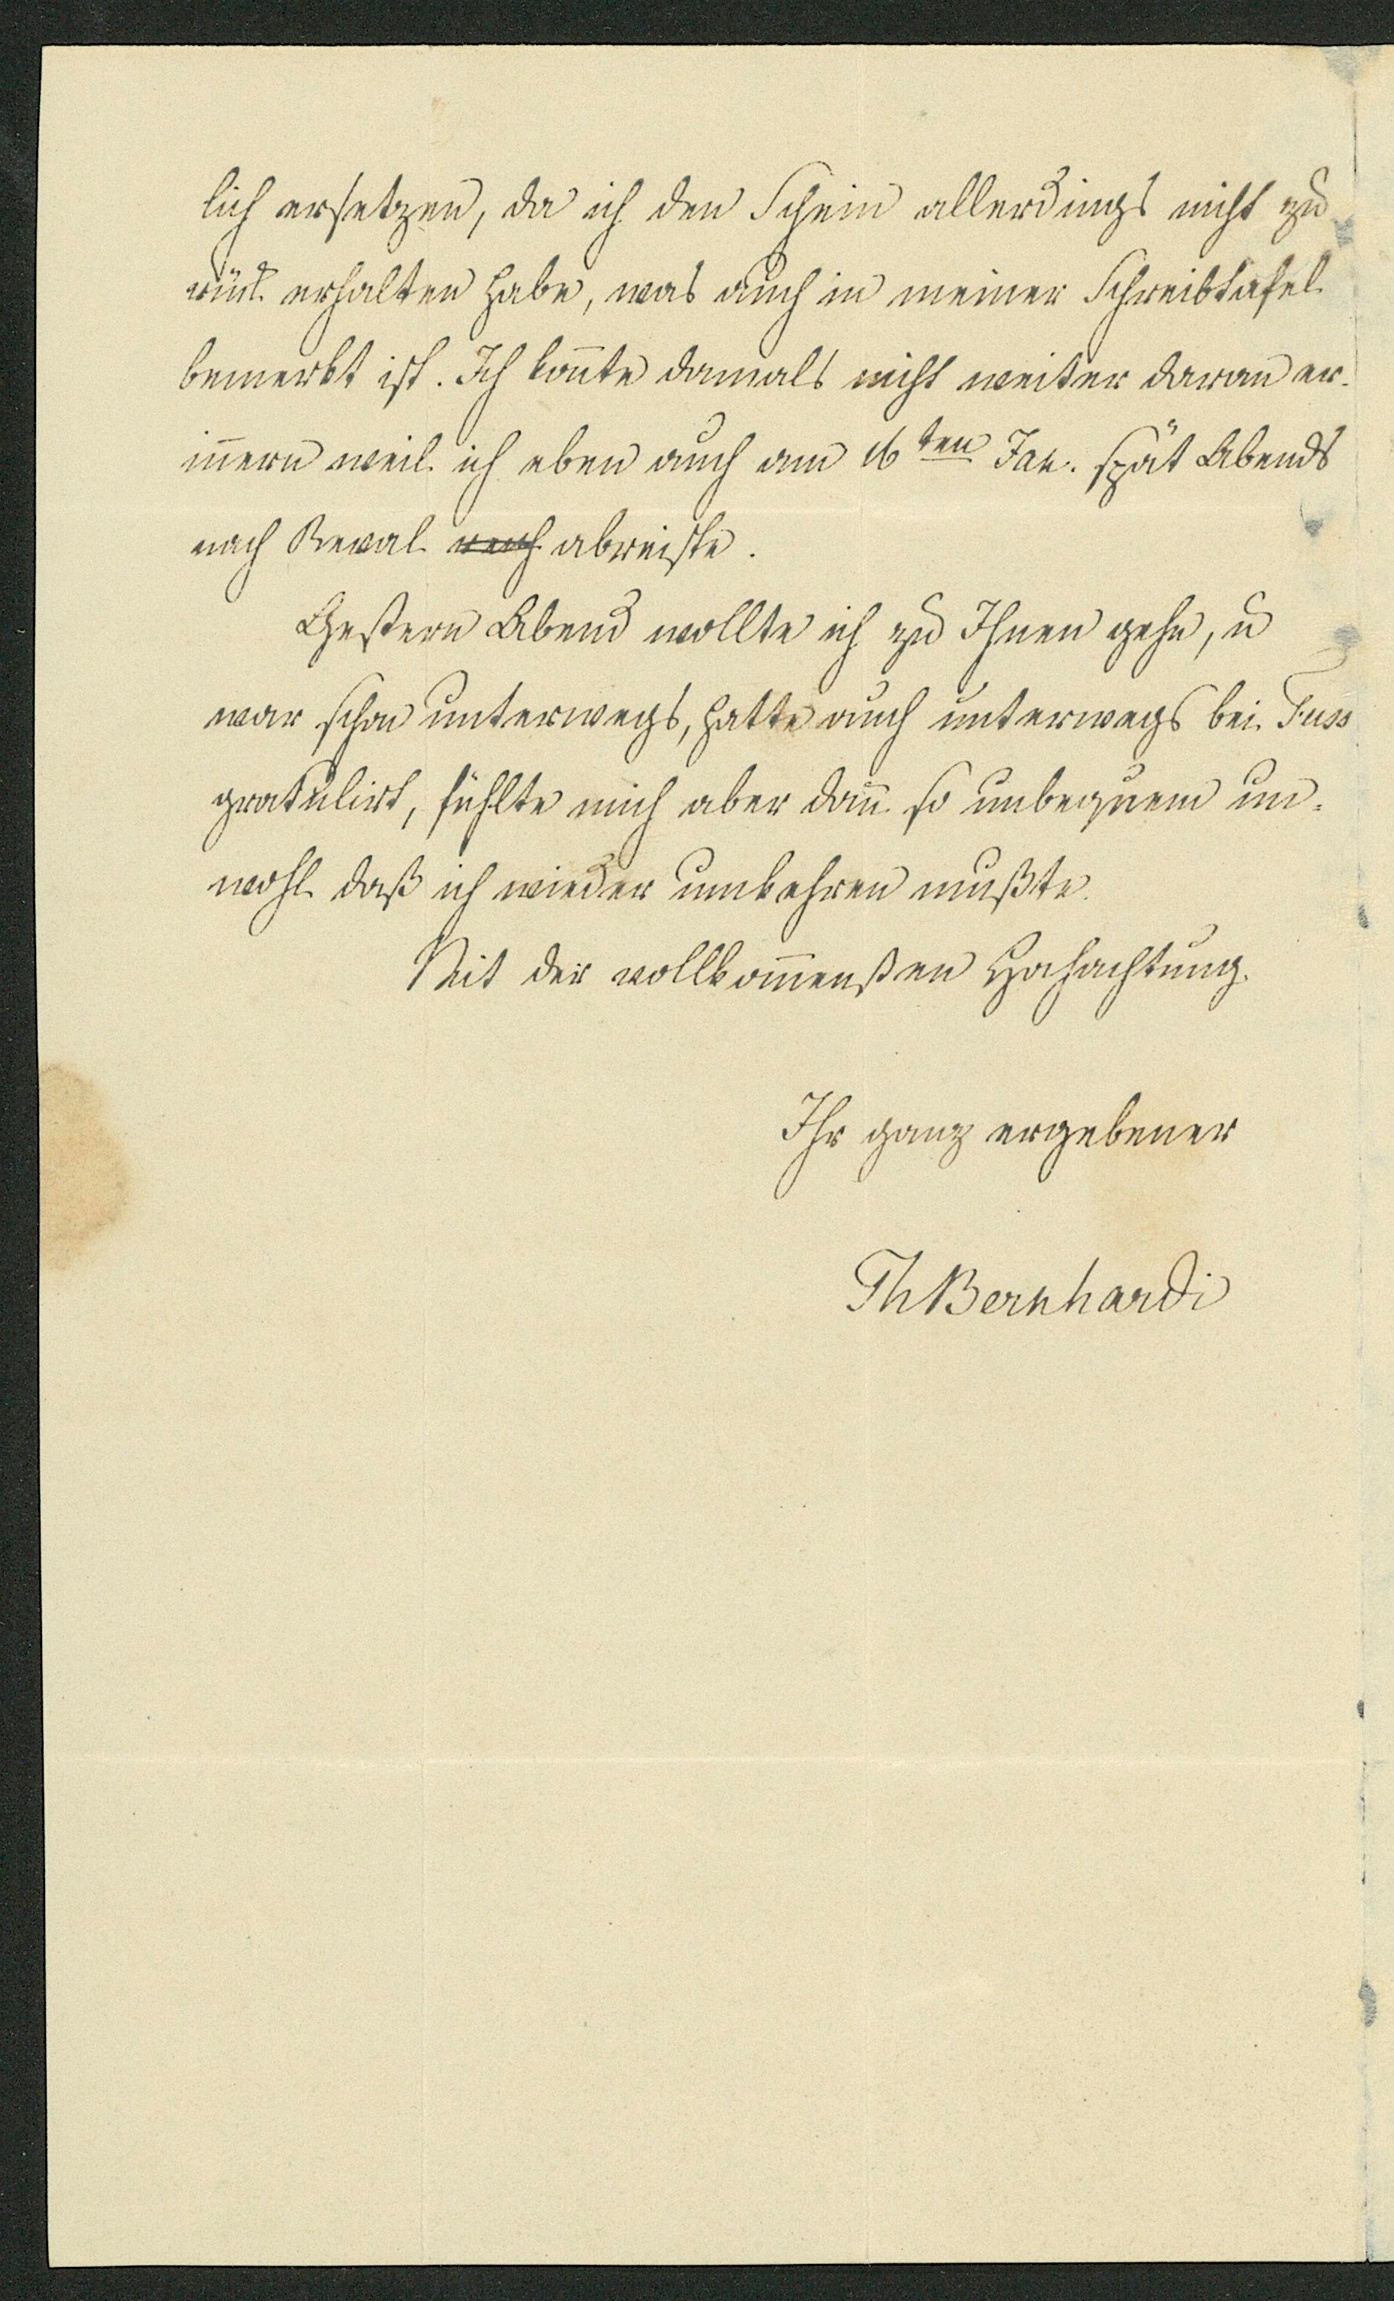 lich ersetzen, da ich den Schein allerdings nicht zu
rück erhalten habe, was auch in meiner Schreibtafel
bemerkt ist. Ich kon̄te damals nicht weiter daran er-
in̄ern weil ich eben auch am 16ten Jan. spät Abends
nach Reval noch abreiste.
Gestern Abend wollte ich zu Ihnen gehn, u
war schon unterwegs, hatte auch unterwegs bei Fuss
gratulirt, fühlte mich aber dan̄ so unbequem un-
wohl daß ich wieder umkehren mußte.
Mit der vollkom̄ensten Hochachtung
Ihr ganz ergebener
ThBernhardi